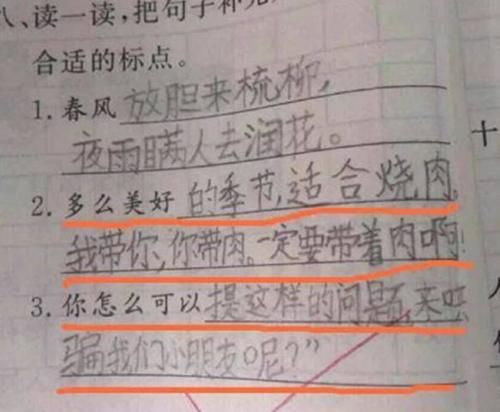 八、读一读，把句子补充
合适的标点。
1.春风放胆来梳柳，
夜雨瞒人去润花。
2.多么美好的季节,适合烧肉。
我带你,你带肉。一定要带着肉啊!
3.你怎么可以提这样的问题,来
骗我们小朋友呢?”
十